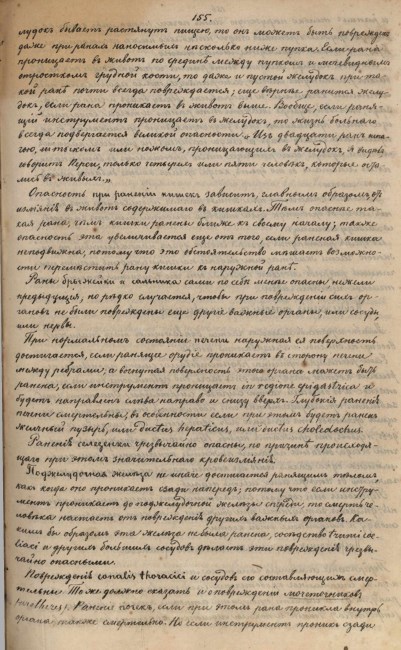 155.
лудокъ бываетъ растянутъ пищею, то онъ можетъ быть поврежденъ
даже при ранахъ наносимыхъ нѣсколько ниже пупка. Если рана
проницаетъ въ животъ по срединѣ между пупкомъ и мечевиднымъ
отросткомъ грудной кости, то даже и пустой желудокъ при та-
кой ранѣ почти всегда повреждается; еще вѣрнѣе ранится желу-
докъ, если рана проникаетъ въ животъ выше. Вообще, если раня-
щій инструментъ проницаетъ въ желудокъ, то жизнь больнаго
всегда подвергается великой опасности. „Изъ двадцати ранъ
штыкомъ или ножомъ, проницающихъ въ желудокъ, я видѣлъ
говоритъ Перси, только четырехъ или пяти человѣкъ, которые оста-
лись въ живыхъ."
Опасность при раненіи кишекъ зависитъ главнымъ образомъ отъ
изліянія въ животъ содержимаго въ кишкахъ. Тѣмъ опаснѣе та-
кая рана, чѣмъ кишки ранены ближе къ своему началу; также
опасность эта увеличивается еще отъ того, если раненая кишка
неподвижна, потому что это обстоятельство мѣшаетъ возможно-
сти припустить рану кишки къ наружной ранѣ.
Раны брыжейки и сальника сами по себѣ менѣе опасны нежели
предыдущія, но рѣдко случается, чтобы при поврежденіи сихъ ор-
гановъ не были повреждены еще другіе важные органы, или сосуды
или нервы.
При нормальномъ состояніи печени наружная ея поверхность
достигается, если ранящее орудіе проникаетъ въ сторону печени
между ребрами; а вогнутая поверхность этого органа можетъ быть
ранена, если инструментъ проницаетъ in regione epigastrica и
будетъ направленъ слѣва направо и снизу вверхъ. Глубокія раненія
печени смертельны; въ особенности если при этомъ будетъ раненъ
желчный пузырь, или ductus hepaticus, или ductus choledochus.
Раненія селезенки чрезвычайно опасны, по причинѣ происходя-
щаго при этомъ значительнаго кровоизліянія.
Поджелудочная железа не иначе достигается ранящимъ тѣломъ,
какъ когда оно проникаетъ сзади напередъ; потому что если инстру-
ментъ проникаетъ до поджелудочной железы спереди, то смерть че-
ловѣка настаетъ отъ поврежденія другихъ важныхъ органовъ. Ка-
кимъ бы образомъ эта железа не была ранена, сосѣдство trunci coe-
liaci и другихъ большихъ сосудовъ дѣлаетъ эти поврежденія чрезвы-
чайно опасными.
Поврежденія canalis thoracici и сосудовъ его составляющихъ смер-
тельны. Тоже должно сказать и о поврежденіи мочеточниковъ
Раненія почекъ, если при этомъ рана проникла внутрь
органа также смертельно. Но если инструментъ проникъ сзади